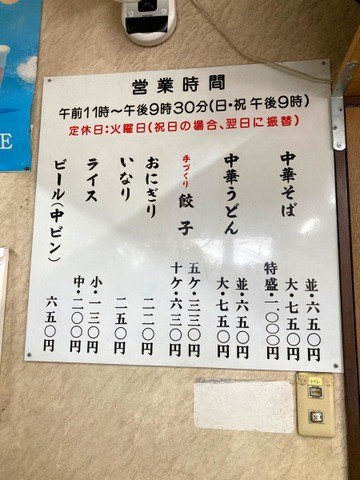 営業時間
午前11時～午後9時30分(日・祝 午後9時)
定休日：火曜日(祝日の場合、翌日に振替)
中華そば
並・六五〇円
大・七五〇円
特盛・一、〇〇〇円
中華うどん
並・六五〇円
大・七五〇円
手づくり 餃子
五ケ・三三〇円
十ケ・六三〇円
おにぎり 二二〇円
いなり 二五〇円
ライス
小・一三〇円
中・二〇〇円
ビール(中ビン) 六五〇円